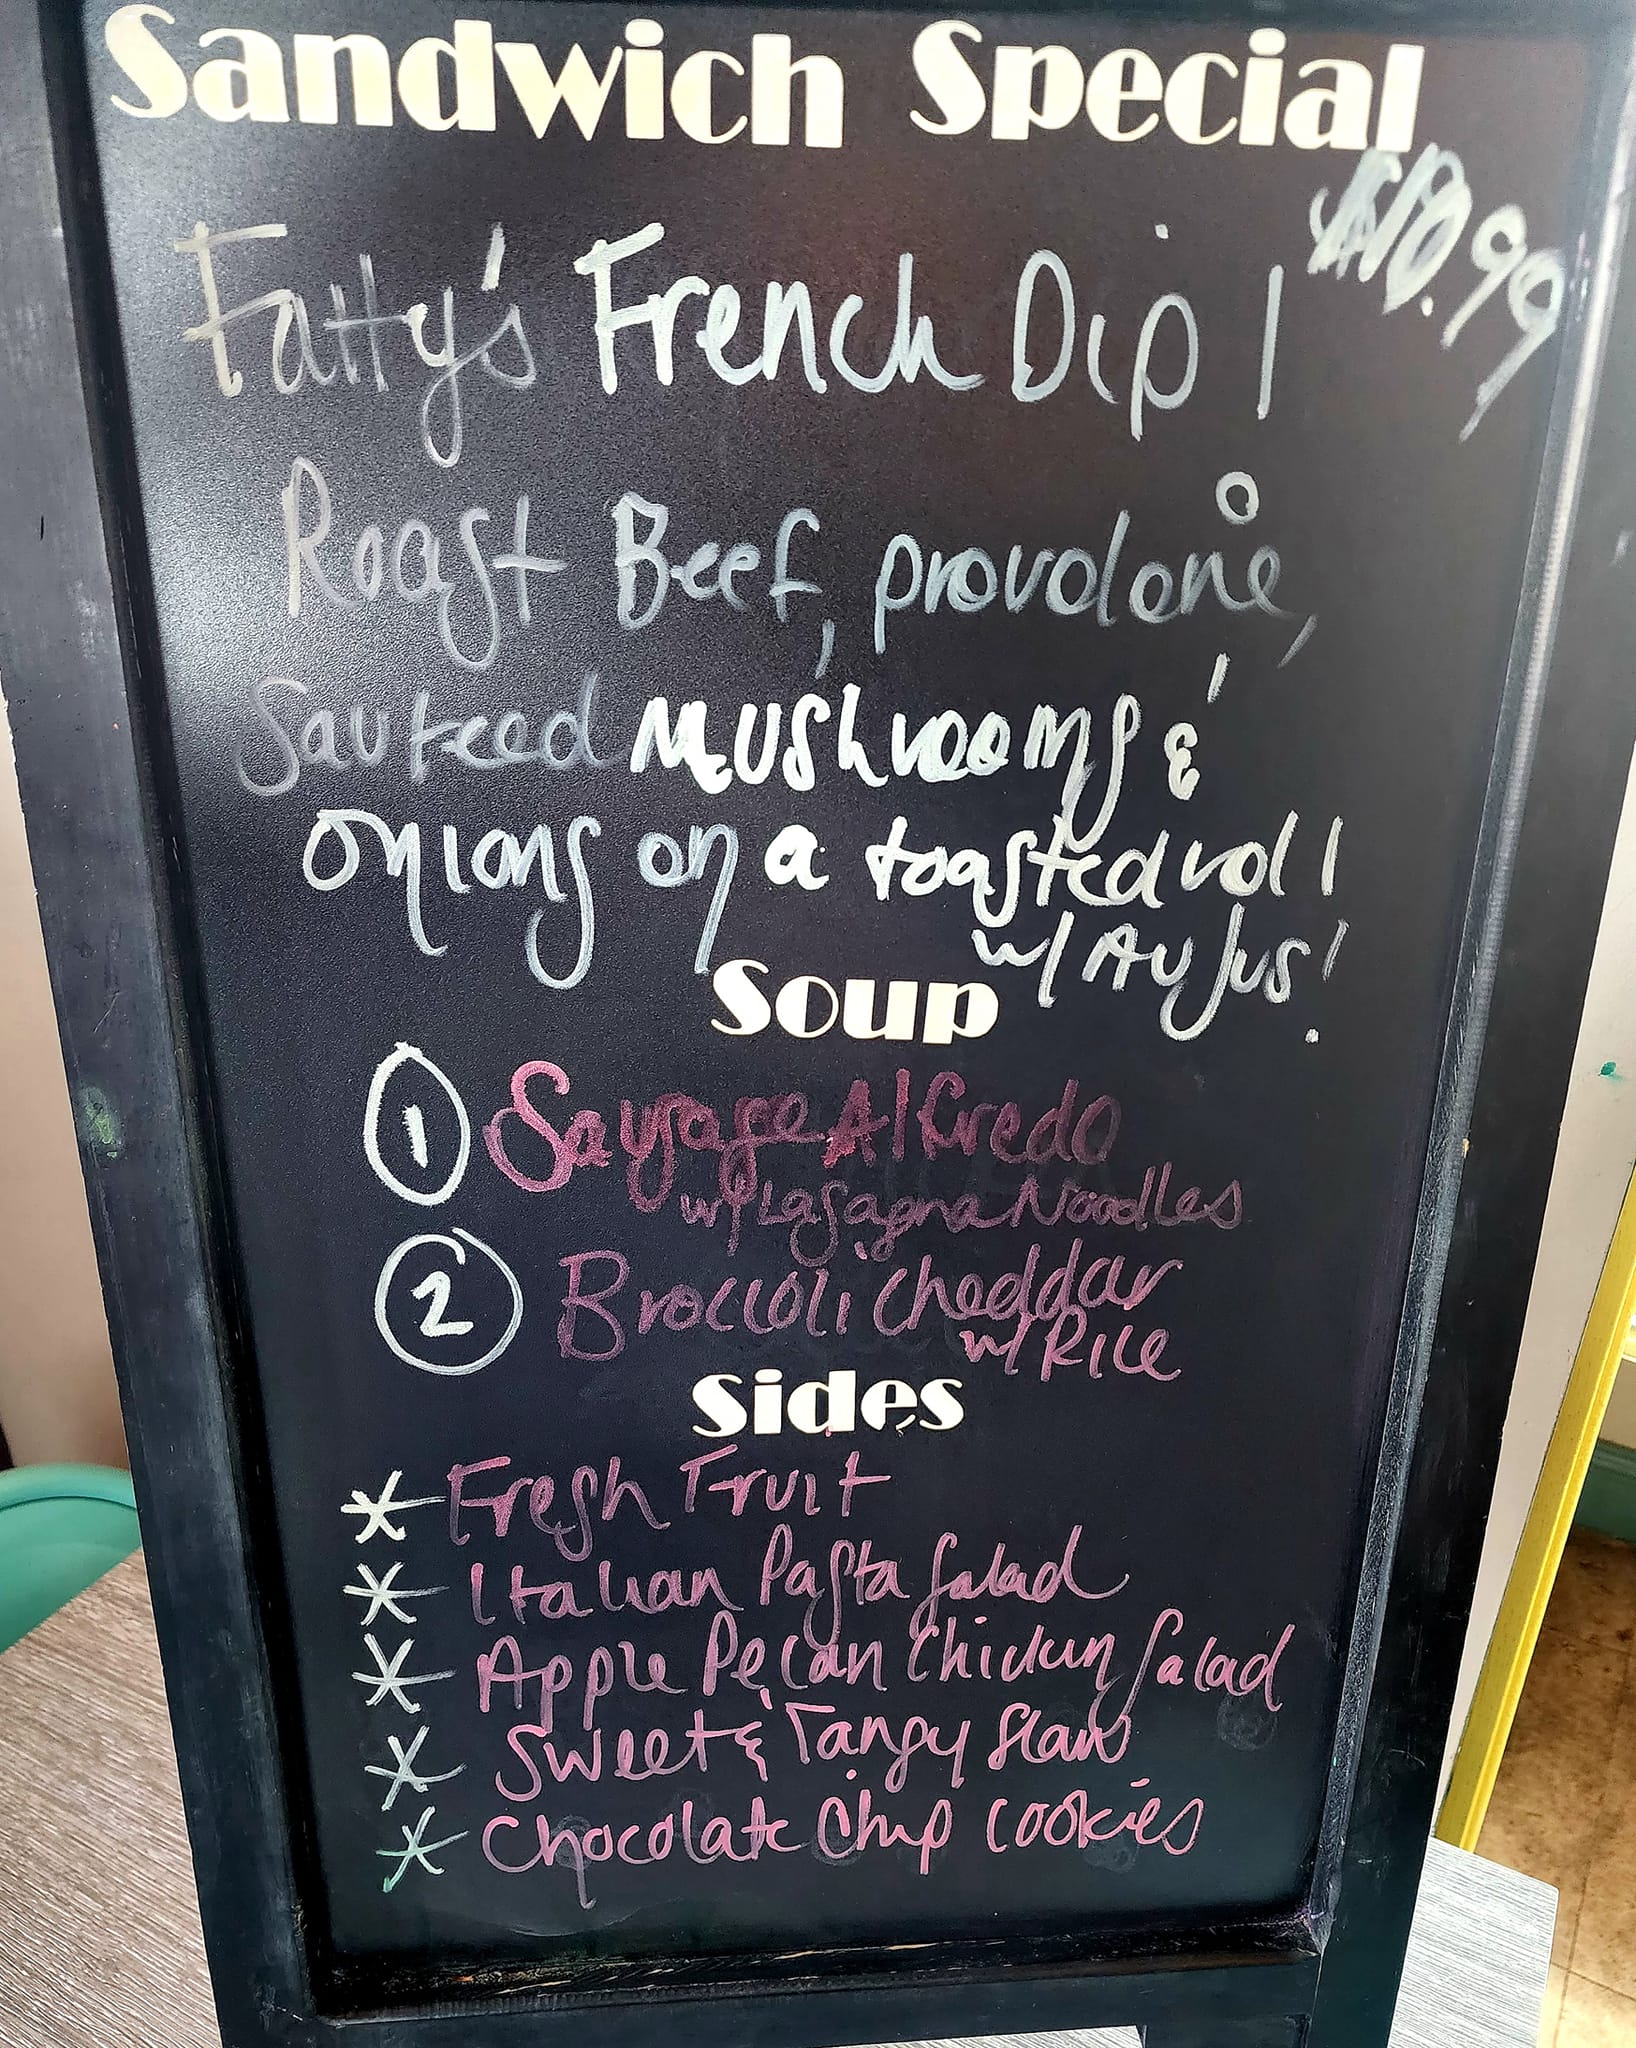 Sandwich Special
$10.99
Fatty's French Dip!
Roast Beef, provolone,
Sauteed Mushrooms &
onions on a toasted roll
w/ Au Jus!
Soup
1 Sausage Alfredo
w/ Lasagna Noodles
2 Broccoli Cheddar
w/ Rice
Sides
* Fresh Fruit
* Italian Pasta Salad
* Apple Pecan Chicken Salad
* Sweet & Tangy Slaw
* Chocolate Chip Cookies